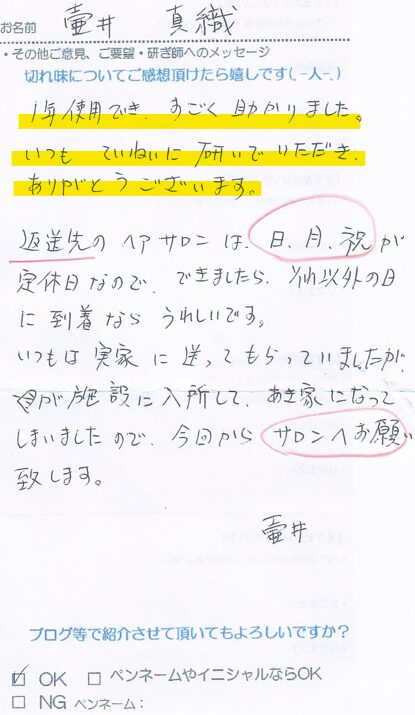 お名前 壷井 真織
・その他ご意見、ご要望・研ぎ師へのメッセージ
切れ味についてご感想頂けたら嬉しです(.-人-.)
1年使用でき、すごく助かりました。
いつも ていねいに 研いでいただき、
ありがとうございます。
返送先のヘアサロンは、日、月、祝が
定休日なので、できましたら、それ以外の日
に到着なら うれしいです。
いつもは実家に送ってもらっていましたが、
母が施設に入所して、あき家になって
しまいましたので、今回から サロンへお願い
致します。
壷井
ブログ等で紹介させて頂いてもよろしいですか?
☑ OK □ ペンネームやイニシャルならOK
□ NG ペンネーム: